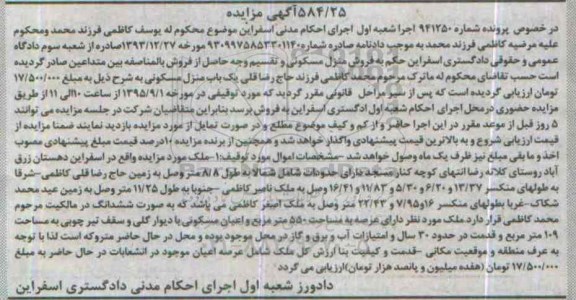 ۵۸۴/۲۵آگهی مزایده
در خصوص پرونده شماره ۹۴۱۲۵۰ اجرا شعبه اول اجرای احکام مدنی اسفراین موضوع محکوم له یوسف کاظمی فرزند محمد ومحکوم
علیه مرضیه کاظمی فرزند محمد به موجب دادنامه صادره شماره۹۳۰۹۹۷۵۸۵۳۳۰۱۱۴۰ مورخه ۱۳۹۳/۱۲/۲۷صادره از شعبه سوم دادگاه
عمومی و حقوقی دادگستری اسفراین حکم به فروش منزل مسکونی و تقسیم وجه حاصل از فروش بالمناصفه بین متداعین صادر گردیده
است حسب تقاضای محکوم له ماترک مرحوم محمد کاظمی فرزند حاج رضا قلی یک باب منزل مسکونی به شرح ذیل به مبلغ ۱۷/۵۰۰/۰۰۰
تومان ارزیابی گردیده است که پس از سیر مراحل قانونی مقرر گردید که مورد توقیفی در مورخه ۱۳۹۵/۹/۱ از ساعت ۱۰الی ۱۱ از طریق
مزایده حضوری درمحل اجرای احکام شعبه اول ادگستری اسفراین به فروش برسد بنابراین متقاضیان شرکت در جلسه مزایده می توانند
۵ روز قبل از موعد مقرر در این اجرا حاضر و از کم و کیف موضوع مطلع و در صورت تمایل از مورد مزایده بازدید نمایند ضمنا مزایده از
قیمت ارزیابی شروع و به بالاترین قیمت پیشنهادی واگذار خواهد شد و همچنین از برنده مزایده ۱۰درصد قیمت مبلغ پیشنهادی مصوب
اخذ و ما بقی مبلغ نیز ظرف یک ماه وصول خواهد شد -مشخصات اموال مورد توقیف۱- ملک مورد مزایده واقع در اسفراین دهستان زرق
آباد روستای کلاته رضا انتهای کوچه کنار مسجد دارای حدودات شامل شمالا به طول ۸/۸متر وصل به زمین حاج رضا قلی کاظمی -شرقا
به طولهای منکسر ۱۳/۳۷ و ۶/۲۰ و ۵/۳۰ و ۱۱/۸۳ و ۱۶/۴۱ وصل به ملک ناصر کاظمی -جنوبا به طول ۱۱/۲۵ متر وصل به زمین عید محمد
شکاک -غربا بطولهای منکسر ۱۶و۷/۹۵ و ۲۲/۴۳ متر وصل به ملک اصغر کاظمی می باشد که به صورت ششدانگ در مالکیت مرحوم
محمد کاظمی قرار دارد ملک مورد نظر دارای عرصه به مساحت ۵۵۰ متر مربع و اعیان مسکونی با دیوار گلی و سقف تیر چوبی به مساحت
۱۰۹ متر مربع و قدمت در حدود ۳۰ سال و امتیازات آب و برق و گاز در محل موجود بوده و محل در حال حاضر متروکه است لذا با توجه
به عرف منطقه و موقعیت مکانی -قدمت و کیفیت بنا ارزش کل ملک شامل عرصه اعیان موجود در انشعابات در حال حاضر به مبلغ
۱۷/۵۰۰/۰۰۰ تومان (هفده میلیون و پانصد هزار تومان)ارزیابی می گردد
دادورز شعبه اول اجرای احکام مدنی دادگستری اسفراین